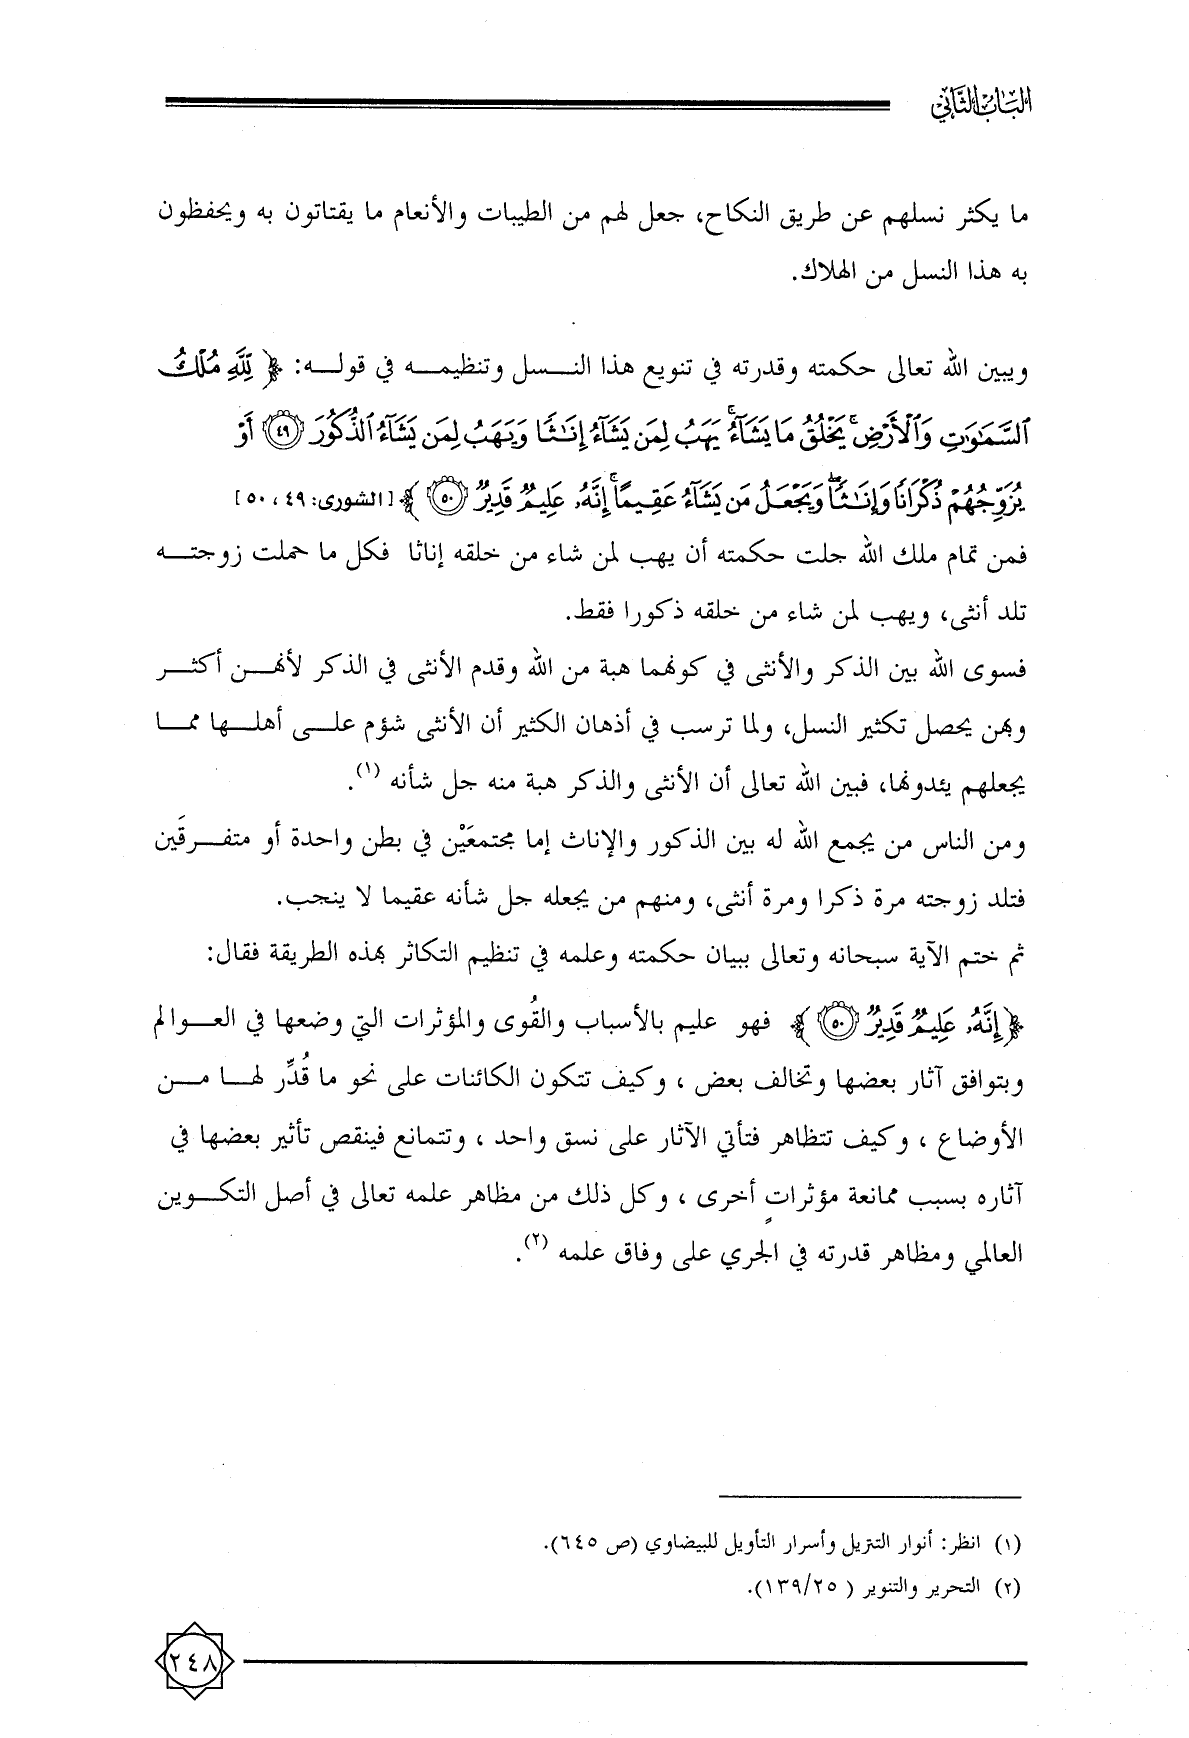 الباب الثاني
ما يكثر نسلهم عن طريق النكاح، جعل لهم من الطيبات والأنعام ما يقتاتون به ويحفظون
به هذا النسل من الهلاك.
ويبين الله تعالى حكمته وقدرته في تنويع هذا النسل وتنظيمه في قوله: ﴿ لِلَّهِ مُلْكُ
ٱلسَّمَٰوَٰتِ وَٱلْأَرْضِ ۚ يَخْلُقُ مَا يَشَآءُ ۚ يَهَبُ لِمَن يَشَآءُ إِنَٰثًا وَيَهَبُ لِمَن يَشَآءُ ٱلذُّكُورَ ﴿٤٩﴾ أَوْ
يُزَوِّجُهُمْ ذُكْرَانًا وَإِنَٰثًا ۖ وَيَجْعَلُ مَن يَشَآءُ عَقِيمًا ۚ إِنَّهُۥ عَلِيمٌ قَدِيرٌ ﴿٥٠﴾ ﴾ [الشورى: ٤٩، ٥٠]
فمن تمام ملك الله جلت حكمته أن يهب لمن شاء من خلقه إناثا فكل ما حملت زوجته
تلد أنثى، ويهب لمن شاء من خلقه ذكورا فقط.
فسوى الله بين الذكر والأنثى في كونهما هبة من الله وقدم الأنثى في الذكر لأنهن أكثر
وبهن يحصل تكثير النسل، ولما ترسب في أذهان الكثير أن الأنثى شؤم على أهلها مما
يجعلهم يئدونها، فبين الله تعالى أن الأنثى والذكر هبة منه جل شأنه (١).
ومن الناس من يجمع الله له بين الذكور والإناث إما مجتمعَيْن في بطن واحدة أو متفرقَين
فتلد زوجته مرة ذكرا ومرة أنثى، ومنهم من يجعله جل شأنه عقيما لا ينجب.
ثم ختم الآية سبحانه وتعالى ببيان حكمته وعلمه في تنظيم التكاثر بهذه الطريقة فقال:
﴿ إِنَّهُۥ عَلِيمٌ قَدِيرٌ ﴿٥٠﴾ ﴾ فهو عليم بالأسباب والقُوى والمؤثرات التي وضعها في العوالم
وبتوافق آثار بعضها وتخالف بعض ، وكيف تتكون الكائنات على نحو ما قُدِّر لها من
الأوضاع ، وكيف تتظاهر فتأتي الآثار على نسق واحد ، وتتمانع فينقص تأثير بعضها في
آثاره بسبب ممانعة مؤثراتٍ أخرى ، وكل ذلك من مظاهر علمه تعالى في أصل التكوين
العالمي ومظاهر قدرته في الجري على وفاق علمه (٢).
(١) انظر: أنوار التنزيل وأسرار التأويل للبيضاوي (ص ٦٤٥).
(٢) التحرير والتنوير ( ١٣٩/٢٥).
٢٤٨